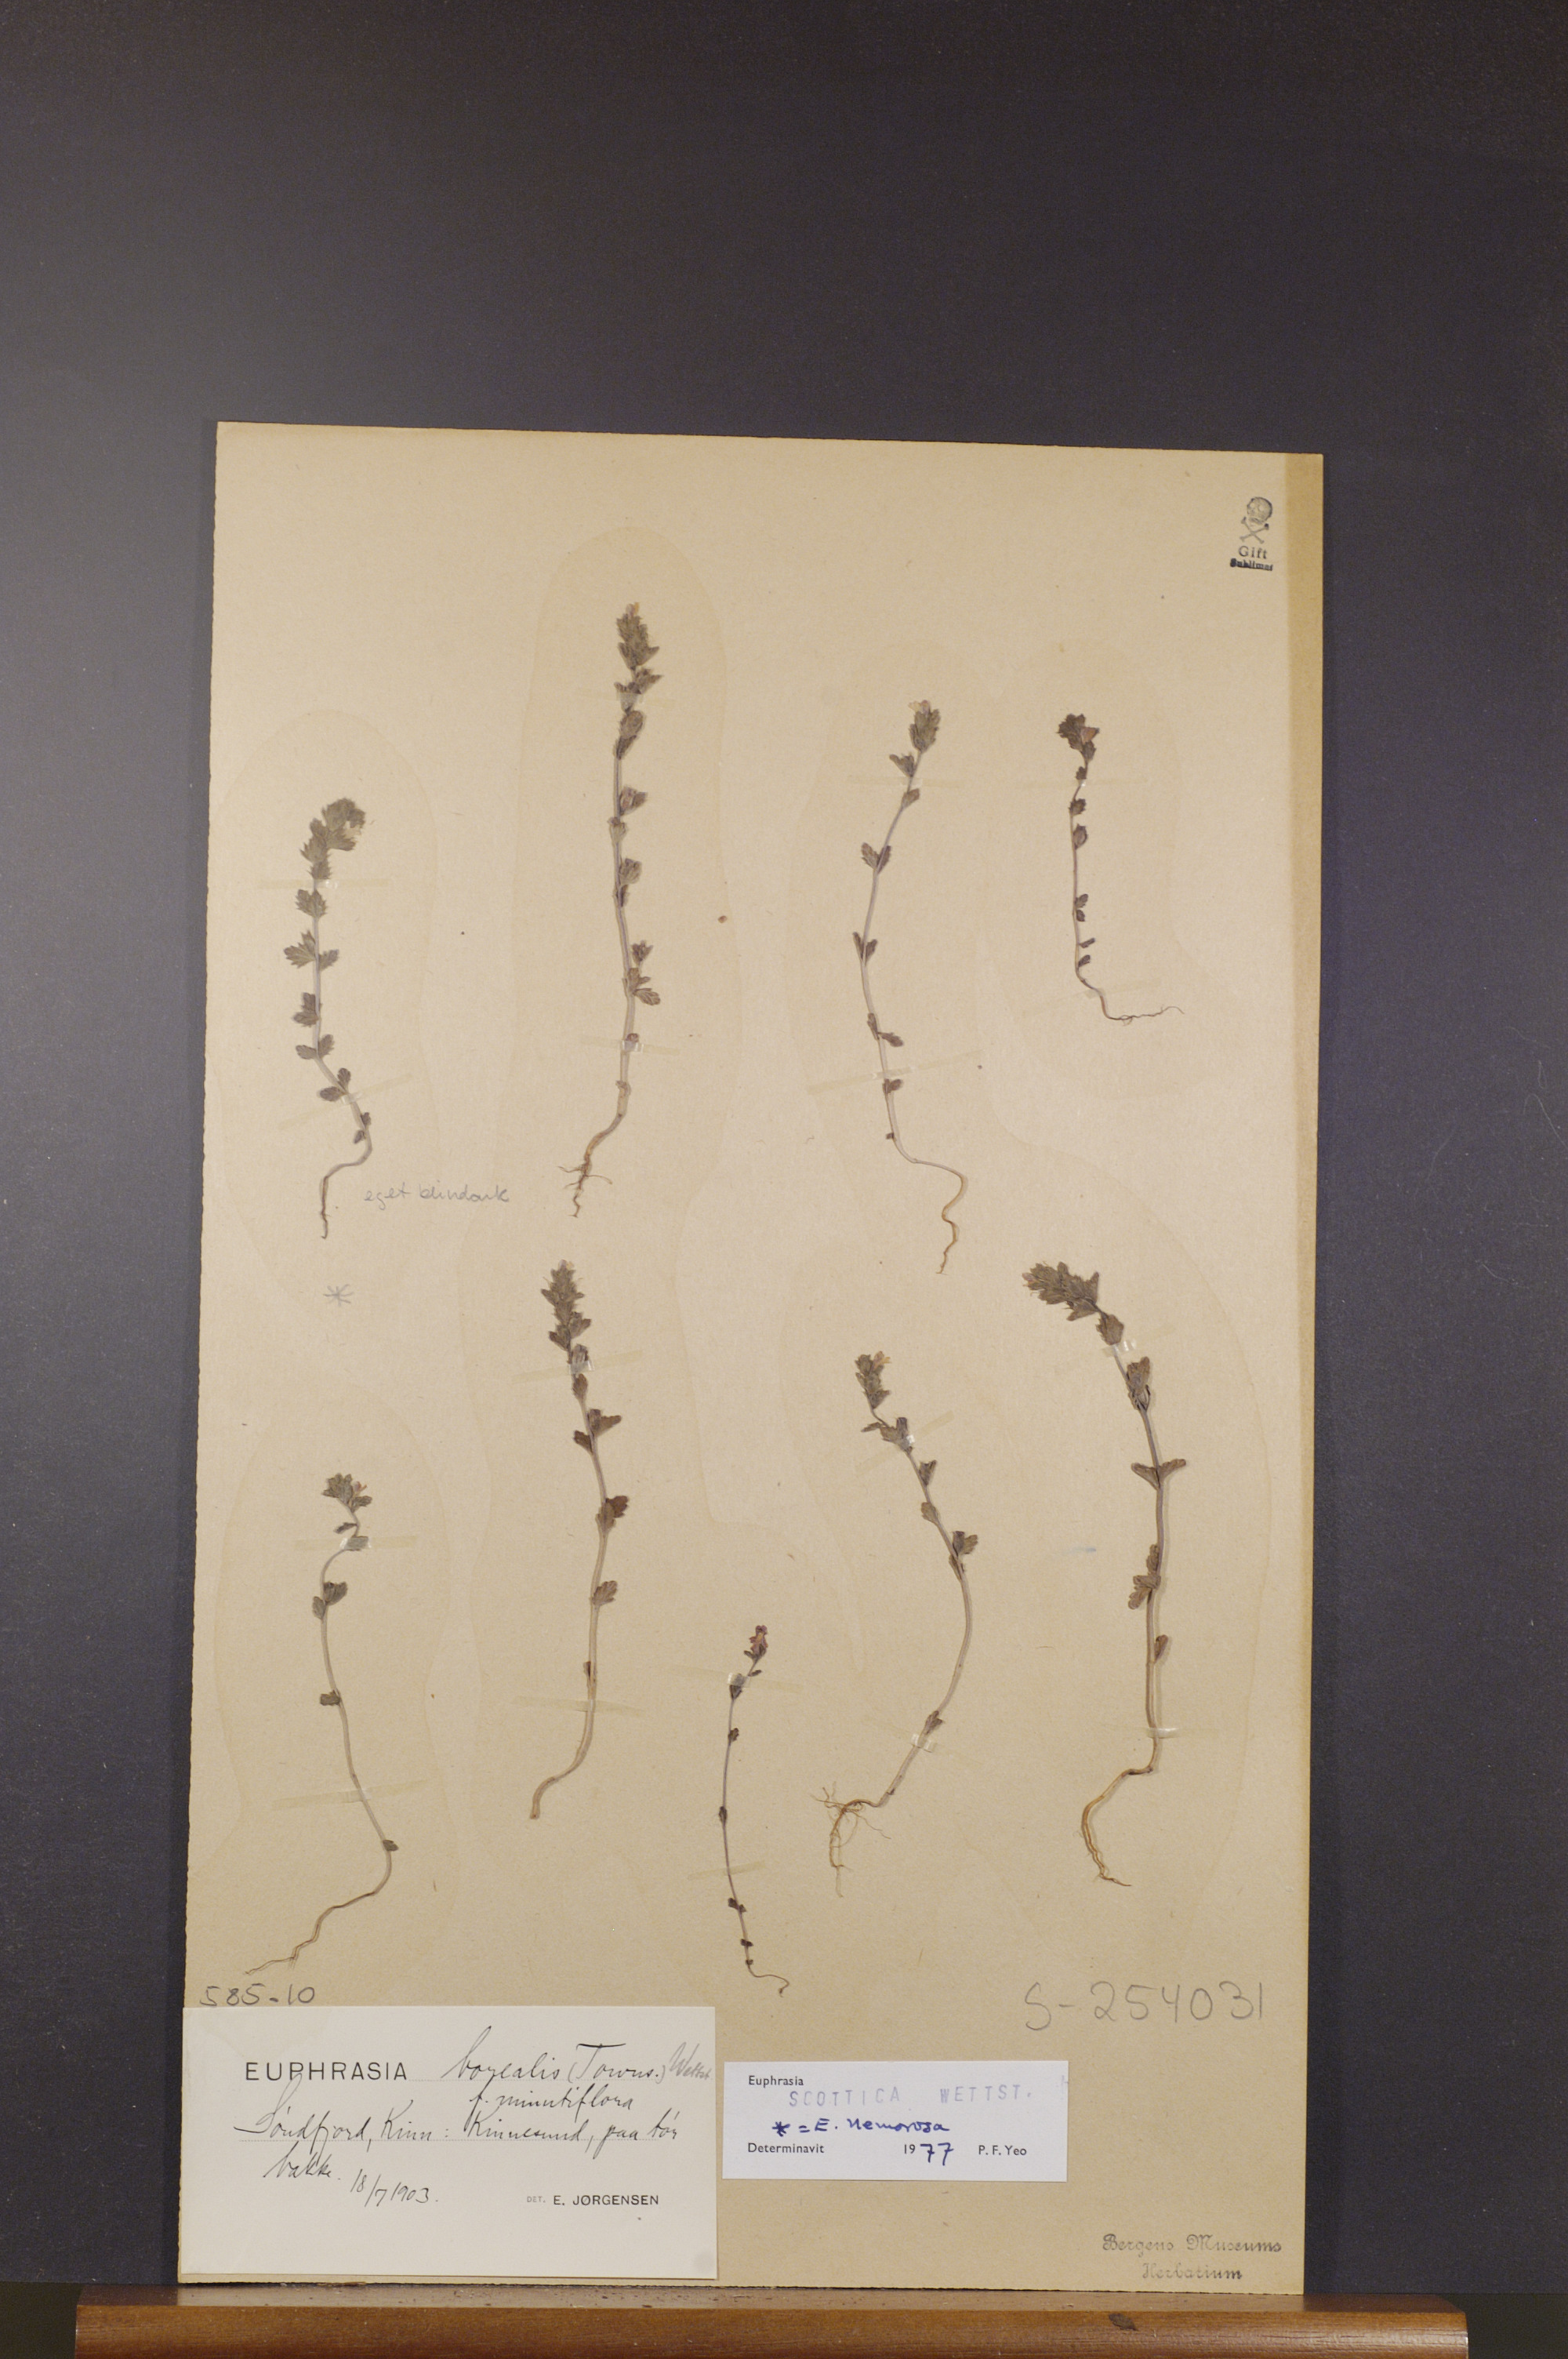 Gift
Sublimat
eget blindark
*
585-10
S-254031
EUPHRASIA borealis (Towns.) Wettst.
f. minutiflora
Søndfjord, Kinn: Kinnesund, paa tør
bakke. 18/7 1903.
DET. E. JØRGENSEN
Euphrasia
SCOTTICA WETTST.
* = E. nemorosa
Determinavit 1977 P. F. Yeo
Bergens Museums
Herbarium